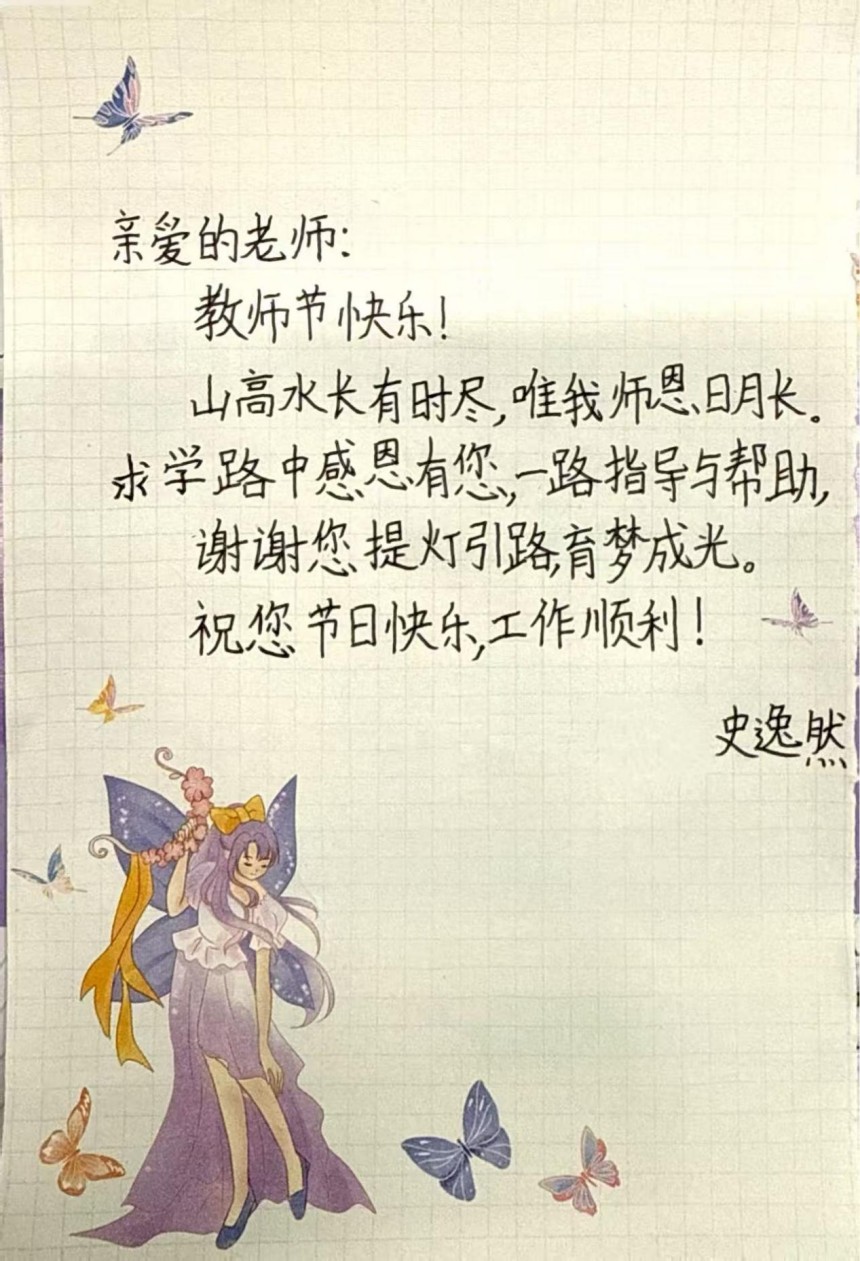 亲爱的老师：
教师节快乐！
山高水长有时尽,唯我师恩日月长。
求学路中感恩有您,一路指导与帮助,
谢谢您提灯引路,育梦成光。
祝您节日快乐,工作顺利！
史逸然